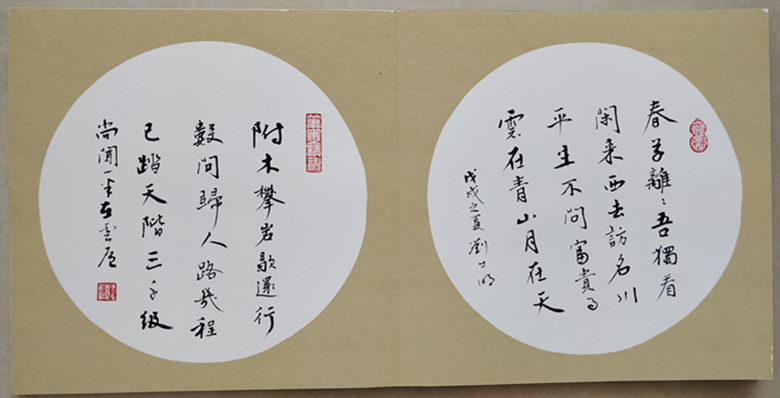 春草離々吾獨看
閑来西去訪名川
平生不問富貴事
雲在青山月在天
戊戌之夏劉士明
附木攀岩歇還行
數問歸人路幾程
已踏天階三千級
尚聞一半在雲層